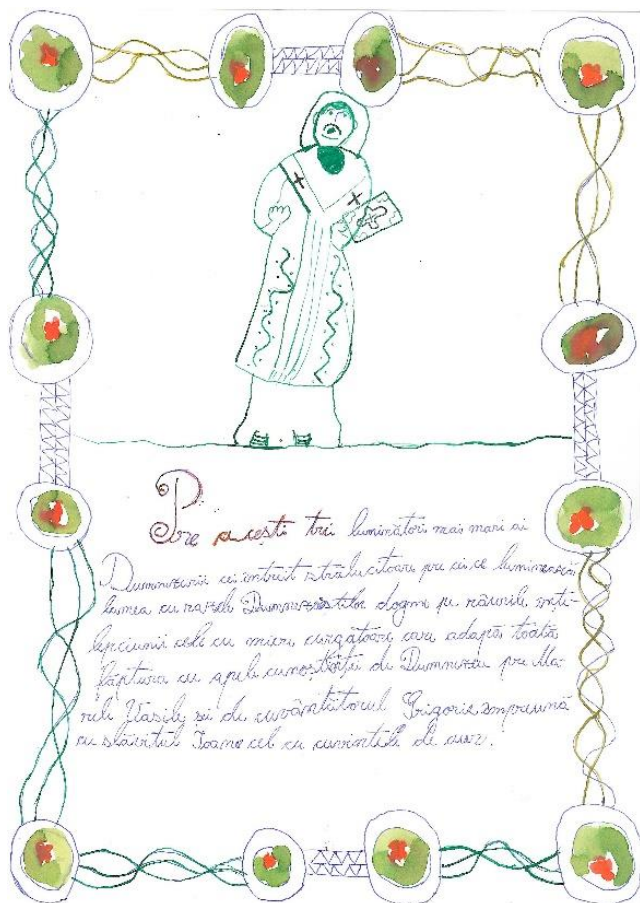 Pre acesti trei luminători mai mari ai
Dumnezeirii cei întreit strălucitoare pre cei ce luminează
lumea cu razele Dumnezeeștilor dogme pe râurile înți-
lepciunii cele cu miere curgătoare care adapă toată
făptura cu apele cunoștinții de Dumnezeu pre Ma-
rele Vasile și de cuvântătorul Grigorie împreună
cu slăvitul Ioane cel cu cuvintele de aur.